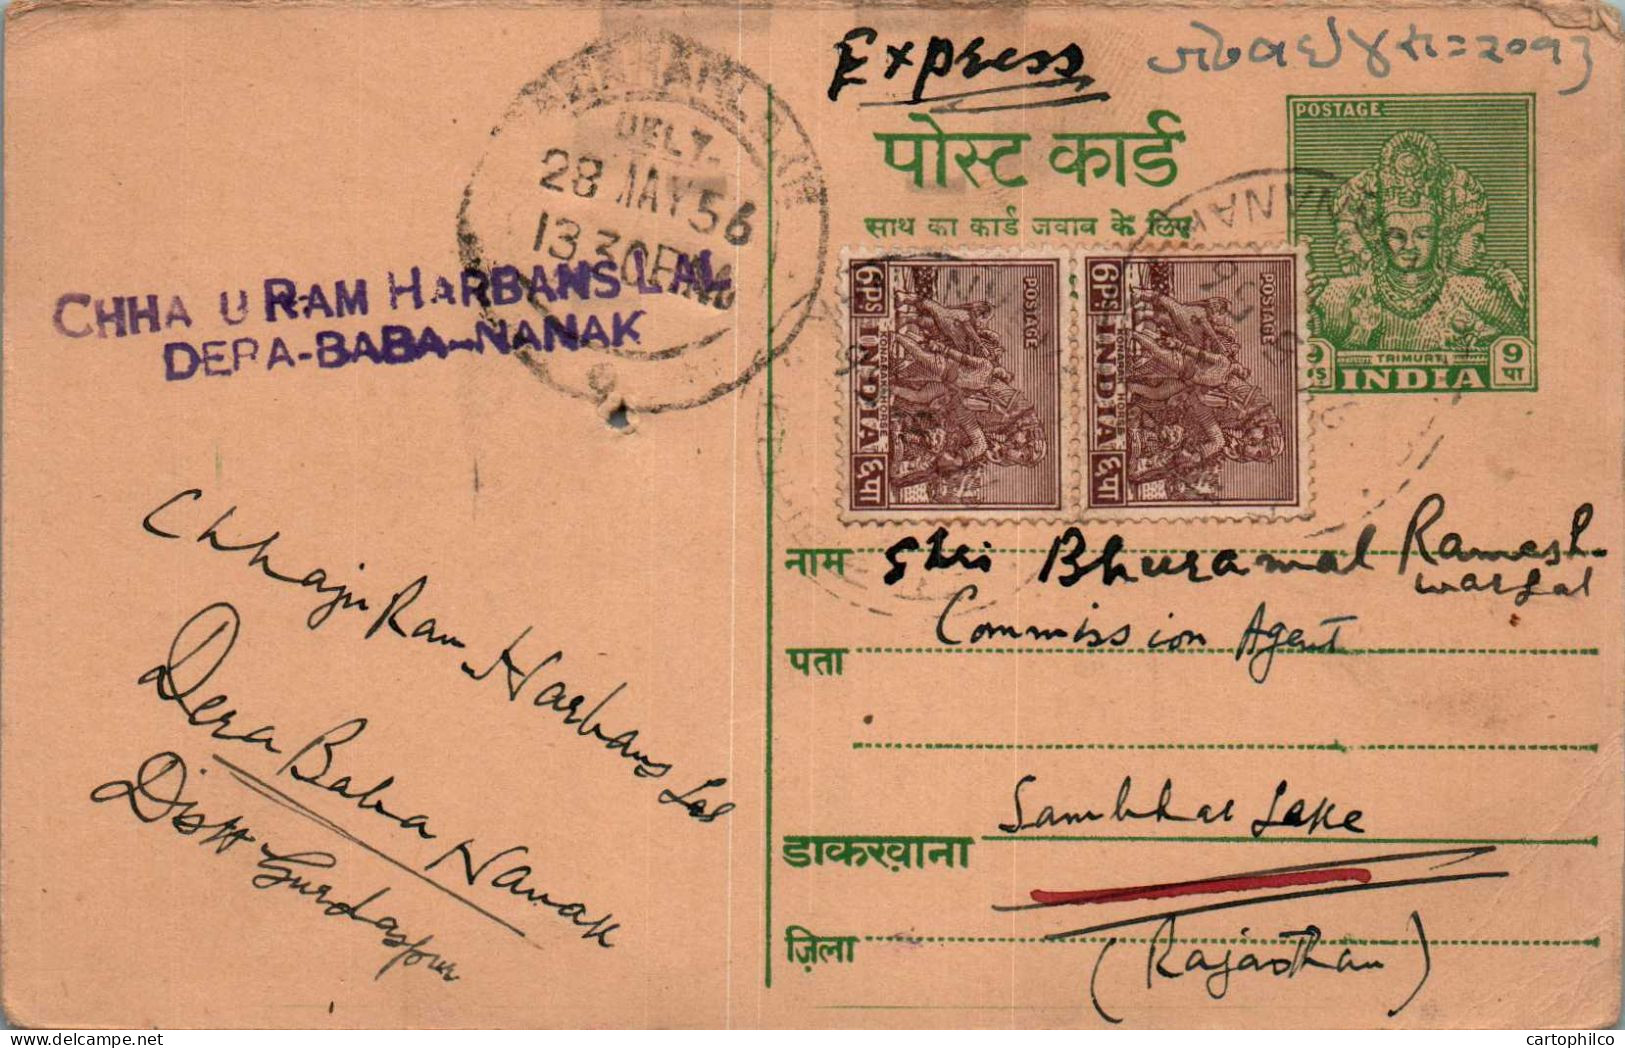 Express
पोस्ट कार्ड
साथ का कार्ड जवाब के लिए
POSTAGE
TRIMURTI
9 पा
INDIA
DELY.
28 MAY 56
13 30
CHHA U RAM HARBANS LAL
DERA-BABA-NANAK
6 PS
POSTAGE
KONARAK HORSE
INDIA
६ पा
6 PS
POSTAGE
KONARAK HORSE
INDIA
६ पा
NANAK
Chhaju Ram Harbans Lal
Dera Baba Nanak
Distt Gurdaspur
नाम Shri Bhuramal Ramesh-
warlal
Commission Agent
पता
Sambhar Lake
डाकख़ाना
ज़िला
(Rajasthan)
www.cartophilco.com
cartophilco